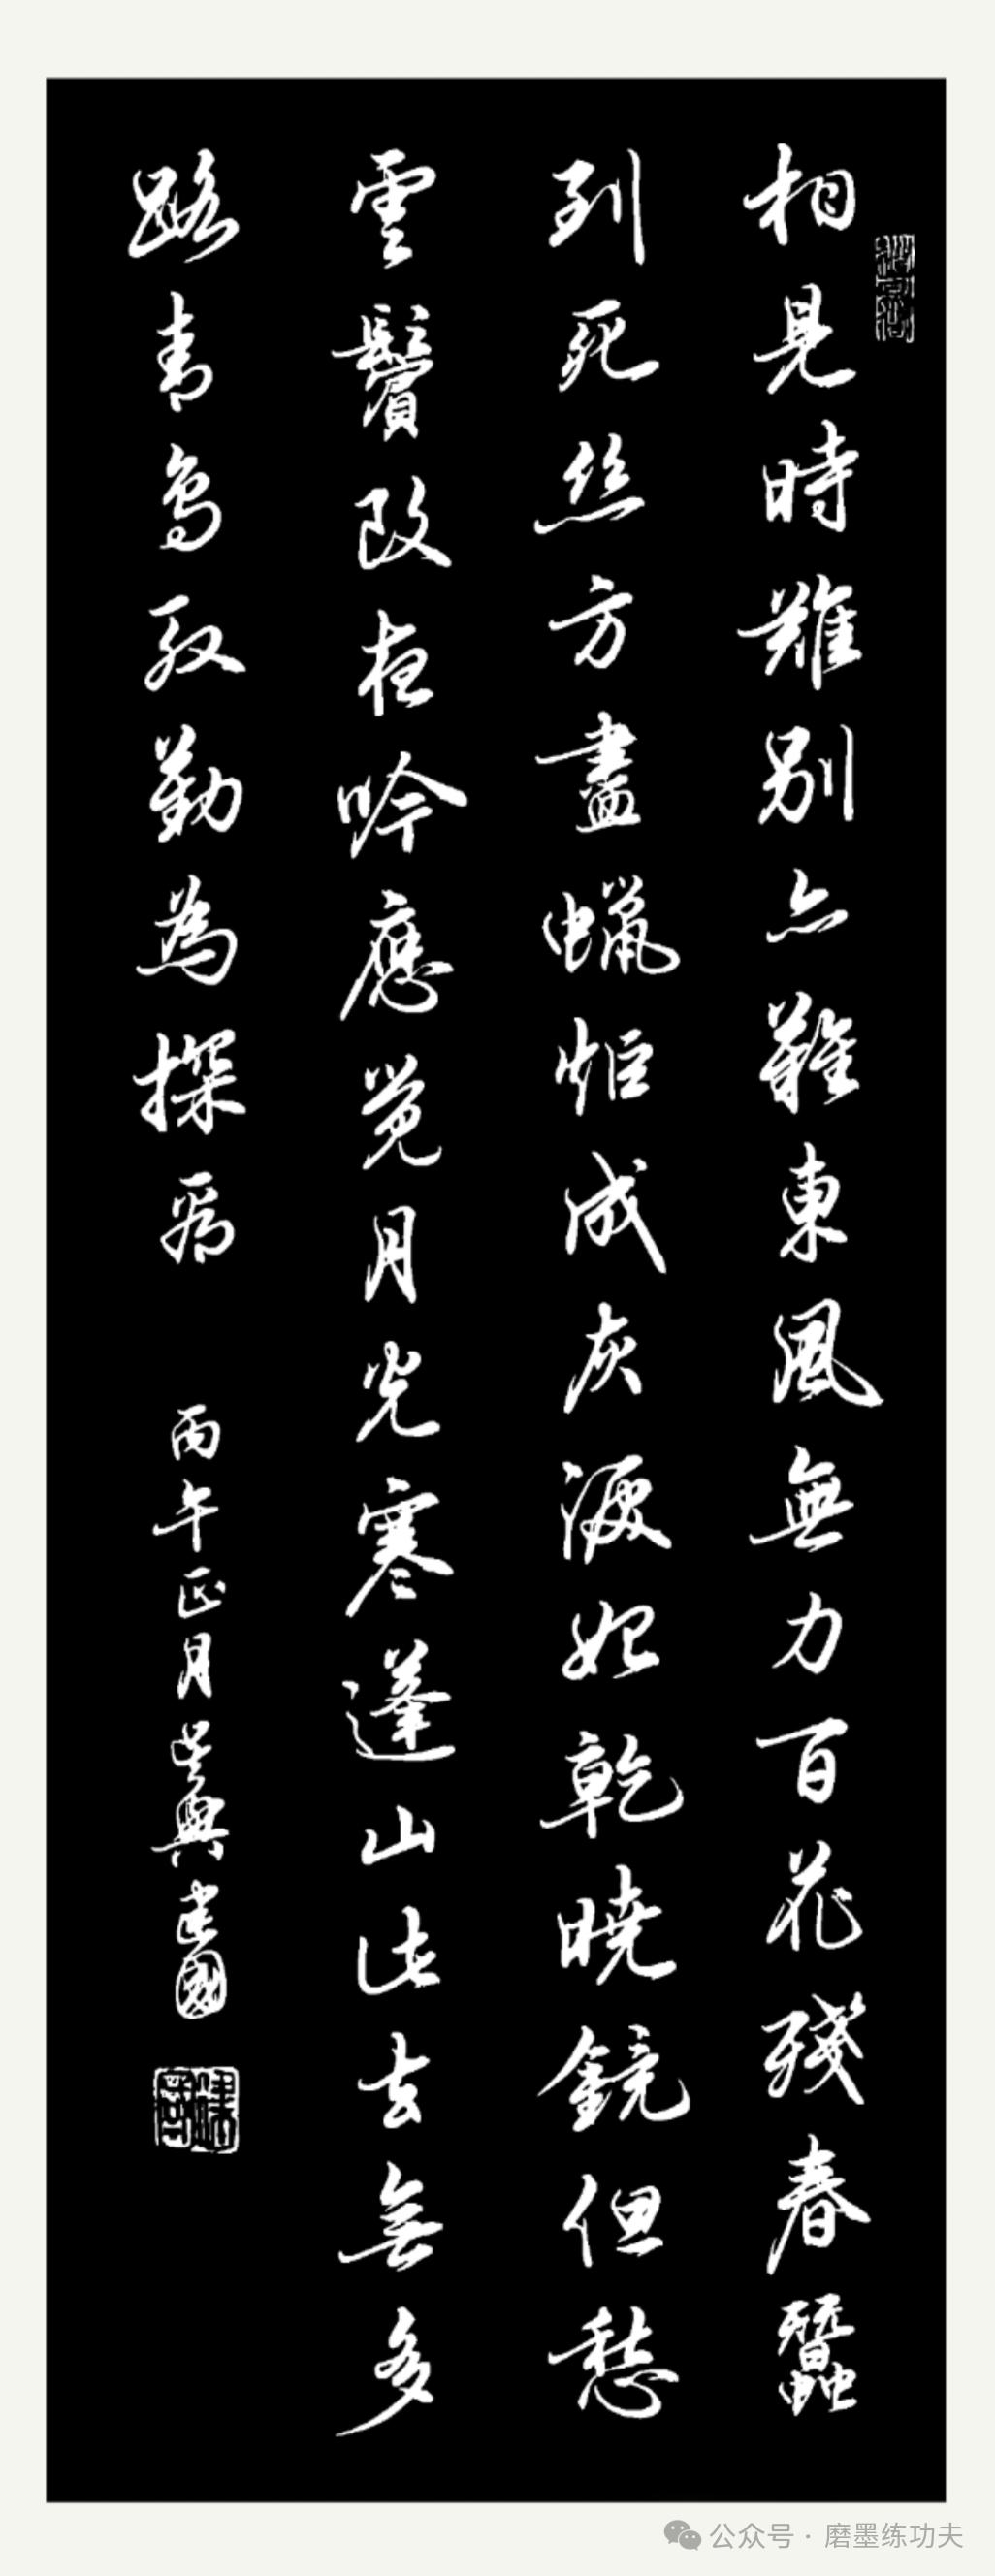 相見時難別亦難東風無力百花殘春蠶
到死絲方盡蠟炬成灰淚始乾曉鏡但愁
雲鬢改夜吟應覺月光寒蓬山此去無多
路青鳥殷勤為探看
丙午正月吳興建國
公众号 · 磨墨练功夫